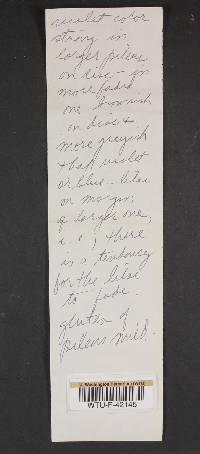 violet color
strong in
larger pileus
on disc - in
more faded
one brownish
on disc &
more greyish
than violet
or blue - lilac
on margin
of larger one,
i.e., there
is a tendency
for the lilac
to fade.
gluten of
pileus mild.
WTU-F-42145